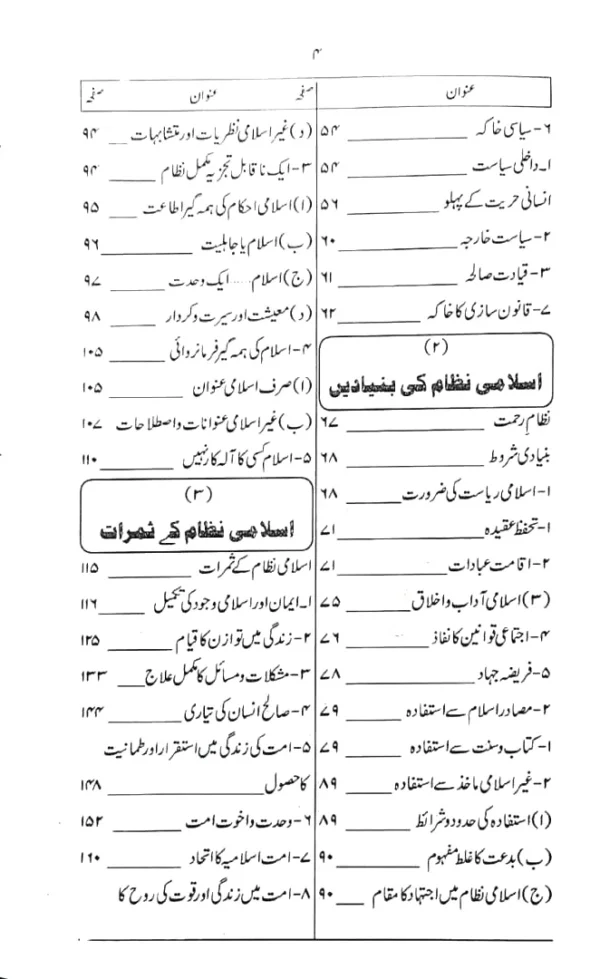 ۴
عنوان صفحہ
۶- سیاسی خاکہ ۵۴
۱- داخلی سیاست ۵۴
انسانی حریت کے پہلو ۵۶
۲- سیاست خارجہ ۶۰
۳- قیادت صالحہ ۶۱
۷- قانون سازی کا خاکہ ۶۲
(۲)
اسلامی نظام کی بنیادیں
نظام رحمت ۶۷
بنیادی شروط ۶۸
۱- اسلامی ریاست کی ضرورت ۶۸
۱- تحفظ عقیدہ ۷۱
۲- اقامت عبادات ۷۱
(۳) اسلامی آداب و اخلاق ۷۵
۴- اجتماعی قوانین کا نفاذ ۷۶
۵- فریضہ جہاد ۷۸
۲- مصادر اسلام سے استفادہ ۷۹
۱- کتاب و سنت سے استفادہ ۷۹
۲- غیر اسلامی ماخذ سے استفادہ ۸۹
(ا) استفادہ کی حدود و شرائط ۸۹
(ب) بدعت کا غلط مفہوم ۹۰
(ج) اسلامی نظام میں اجتہاد کا مقام ۹۰
عنوان صفحہ
(د) غیر اسلامی نظریات اور متشابہات ۹۴
۳- ایک ناقابل تجزیہ مکمل نظام ۹۴
(ا) اسلامی احکام کی ہمہ گیر اطاعت ۹۵
(ب) اسلام یا جاہلیت ۹۶
(ج) اسلام .... ایک وحدت ۹۷
(د) معیشت اور سیرت و کردار ۹۸
۴- اسلام کی ہمہ گیر فرمانروائی ۱۰۵
(ا) صرف اسلامی عنوان ۱۰۵
(ب) غیر اسلامی عنوانات و اصطلاحات ۱۰۷
۵- اسلام کسی کا آلہ کار نہیں ۱۱۰
(۳)
اسلامی نظام کے ثمرات
اسلامی نظام کے ثمرات ۱۱۵
۱- ایمان اور اسلامی وجود کی تکمیل ۱۱۶
۲- زندگی میں توازن کا قیام ۱۲۵
۳- مشکلات و مسائل کا مکمل علاج ۱۳۳
۴- صالح انسان کی تیاری ۱۴۴
۵- امت کی زندگی میں استقرار اور طمانیت
کا حصول ۱۴۸
۶- وحدت و اخوت امت ۱۵۲
۷- امت اسلامیہ کا اتحاد ۱۶۰
۸- امت میں زندگی اور قوت کی روح کا